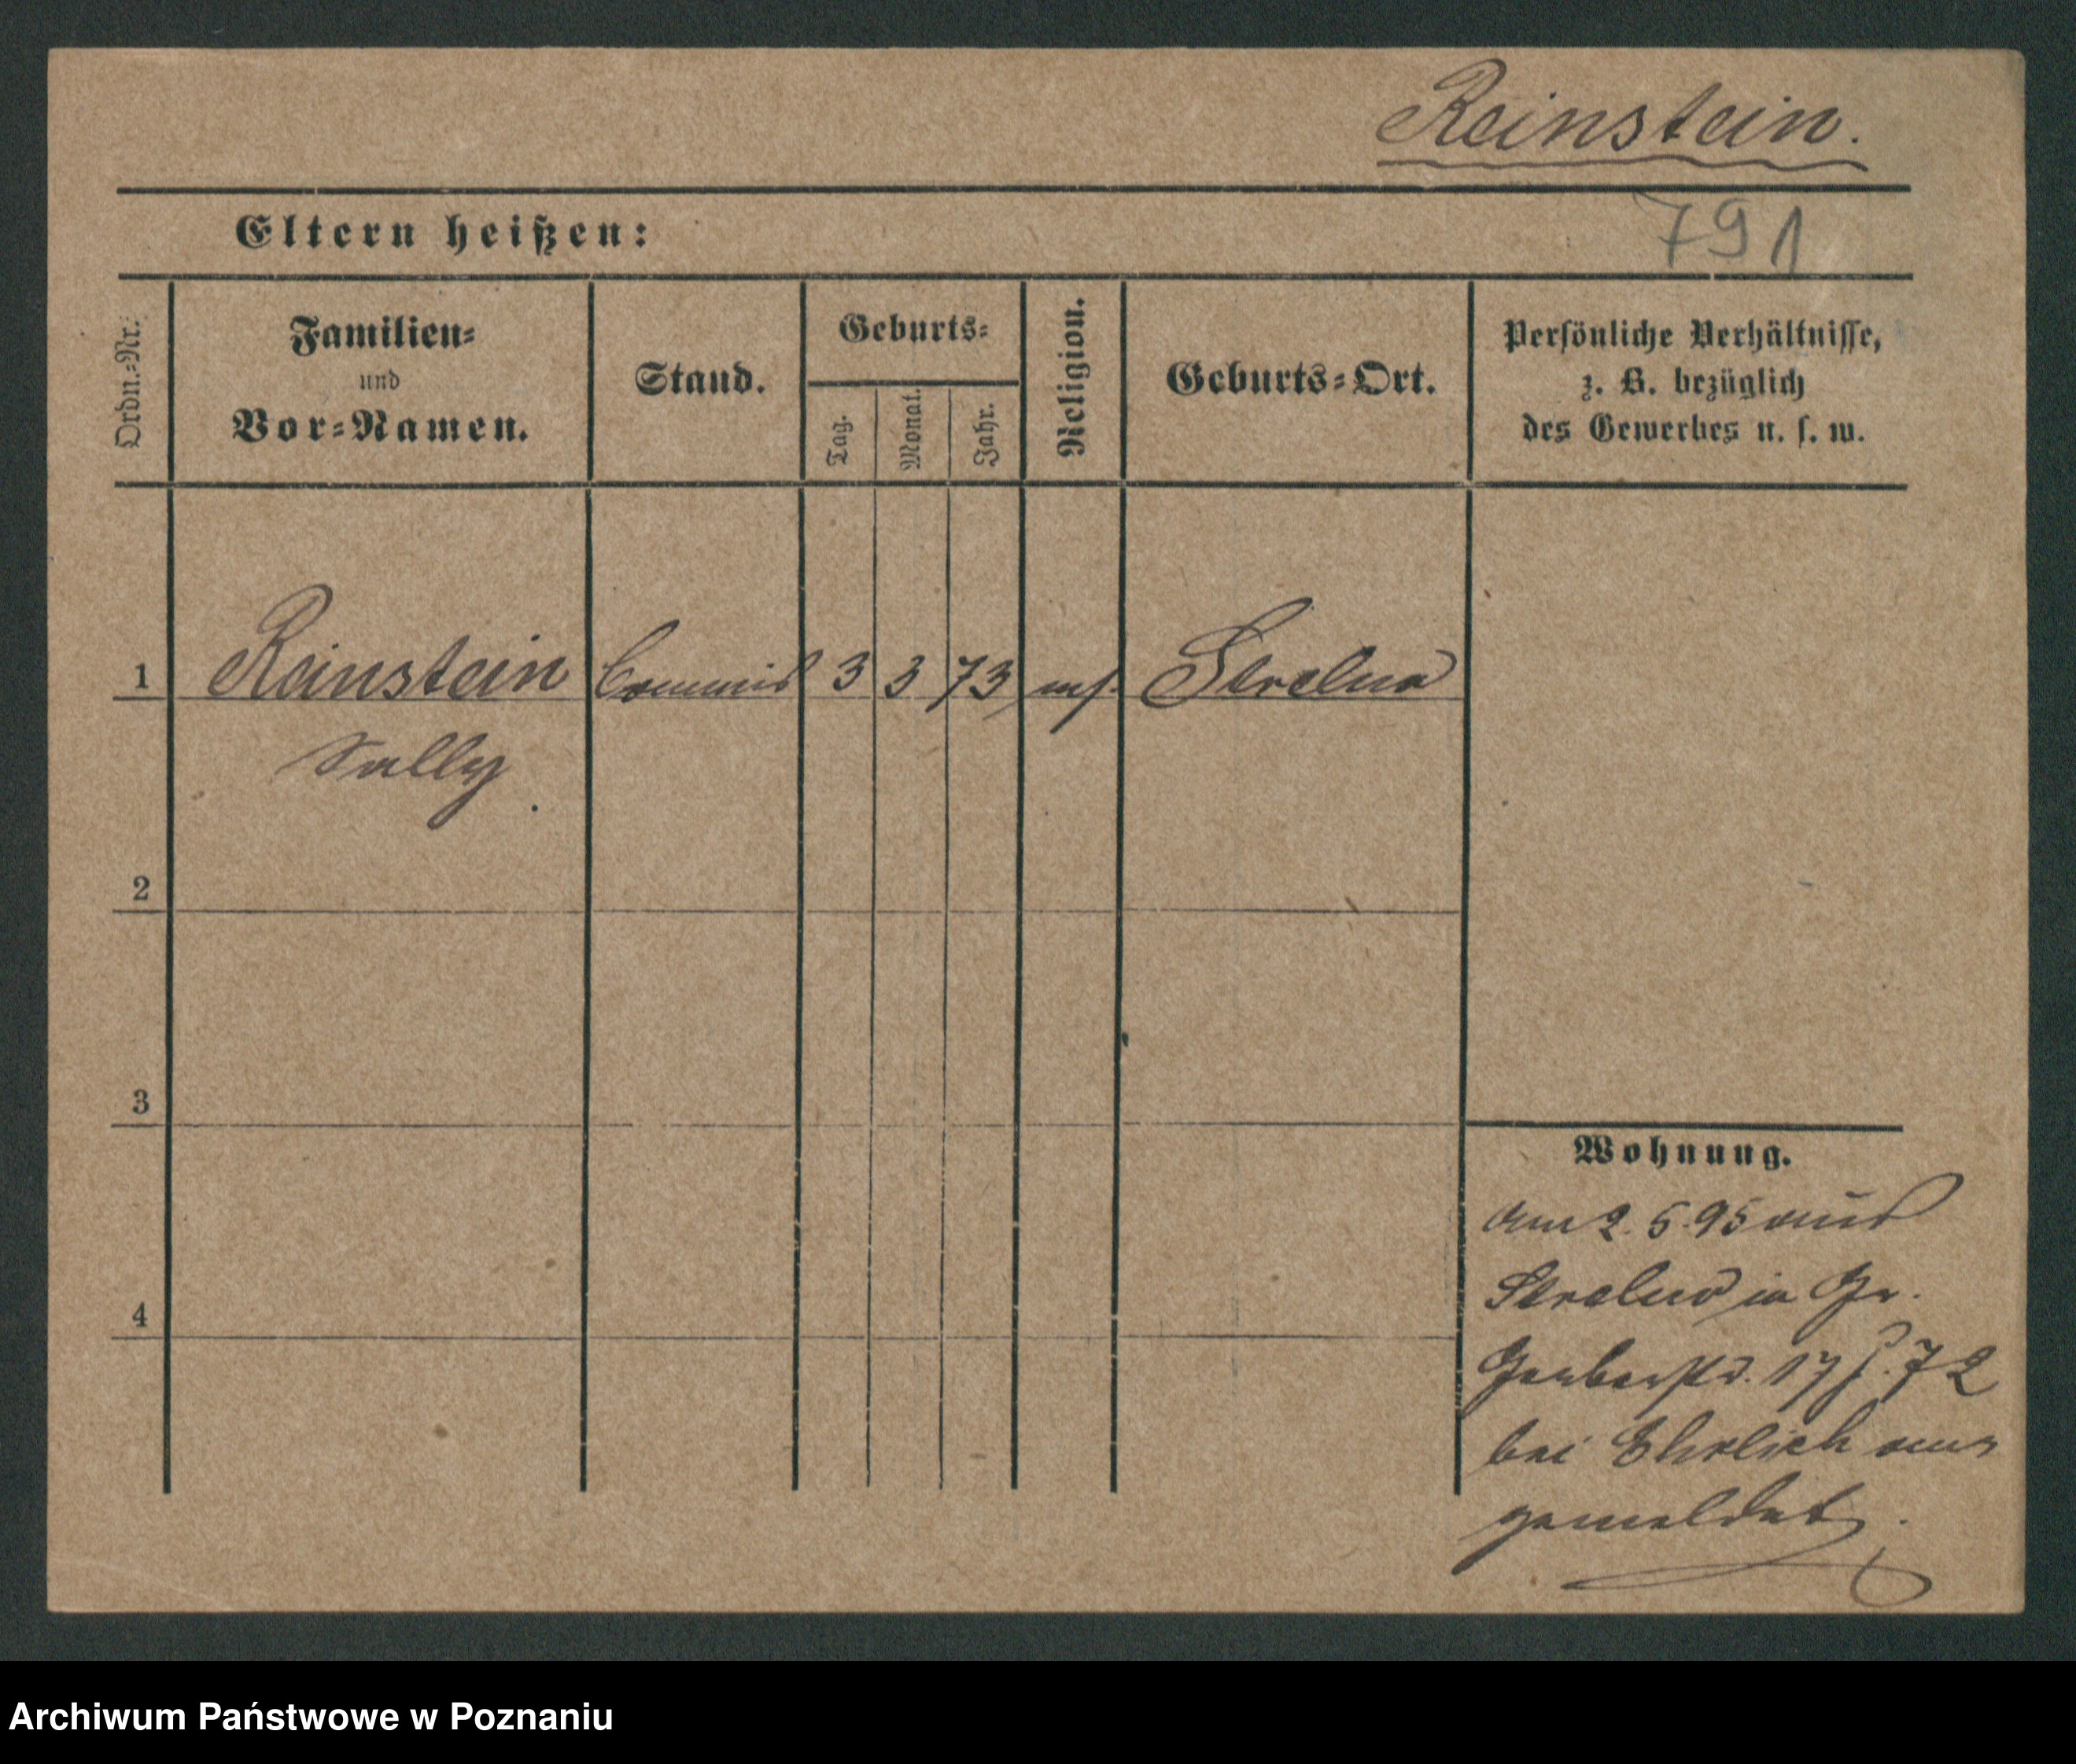 Reinstein.
Eltern heißen:
791
Ordn.-Nr.
Familien-
und
Vor-Namen.
Stand.
Geburts-
Tag.
Monat.
Jahr.
Religion.
Geburts-Ort.
Persönliche Verhältnisse,
z. B. bezüglich
des Gewerbes u. s. w.
1 Reinstein Commis 3 3 73 Strelno
Sally
2
3
4
Wohnung.
am 2. 5. 95 aus
Strelno in Gr.
Gerberstr. 17 72
bei Ehrlich an-
gemeldet.
Archiwum Państwowe w Poznaniu